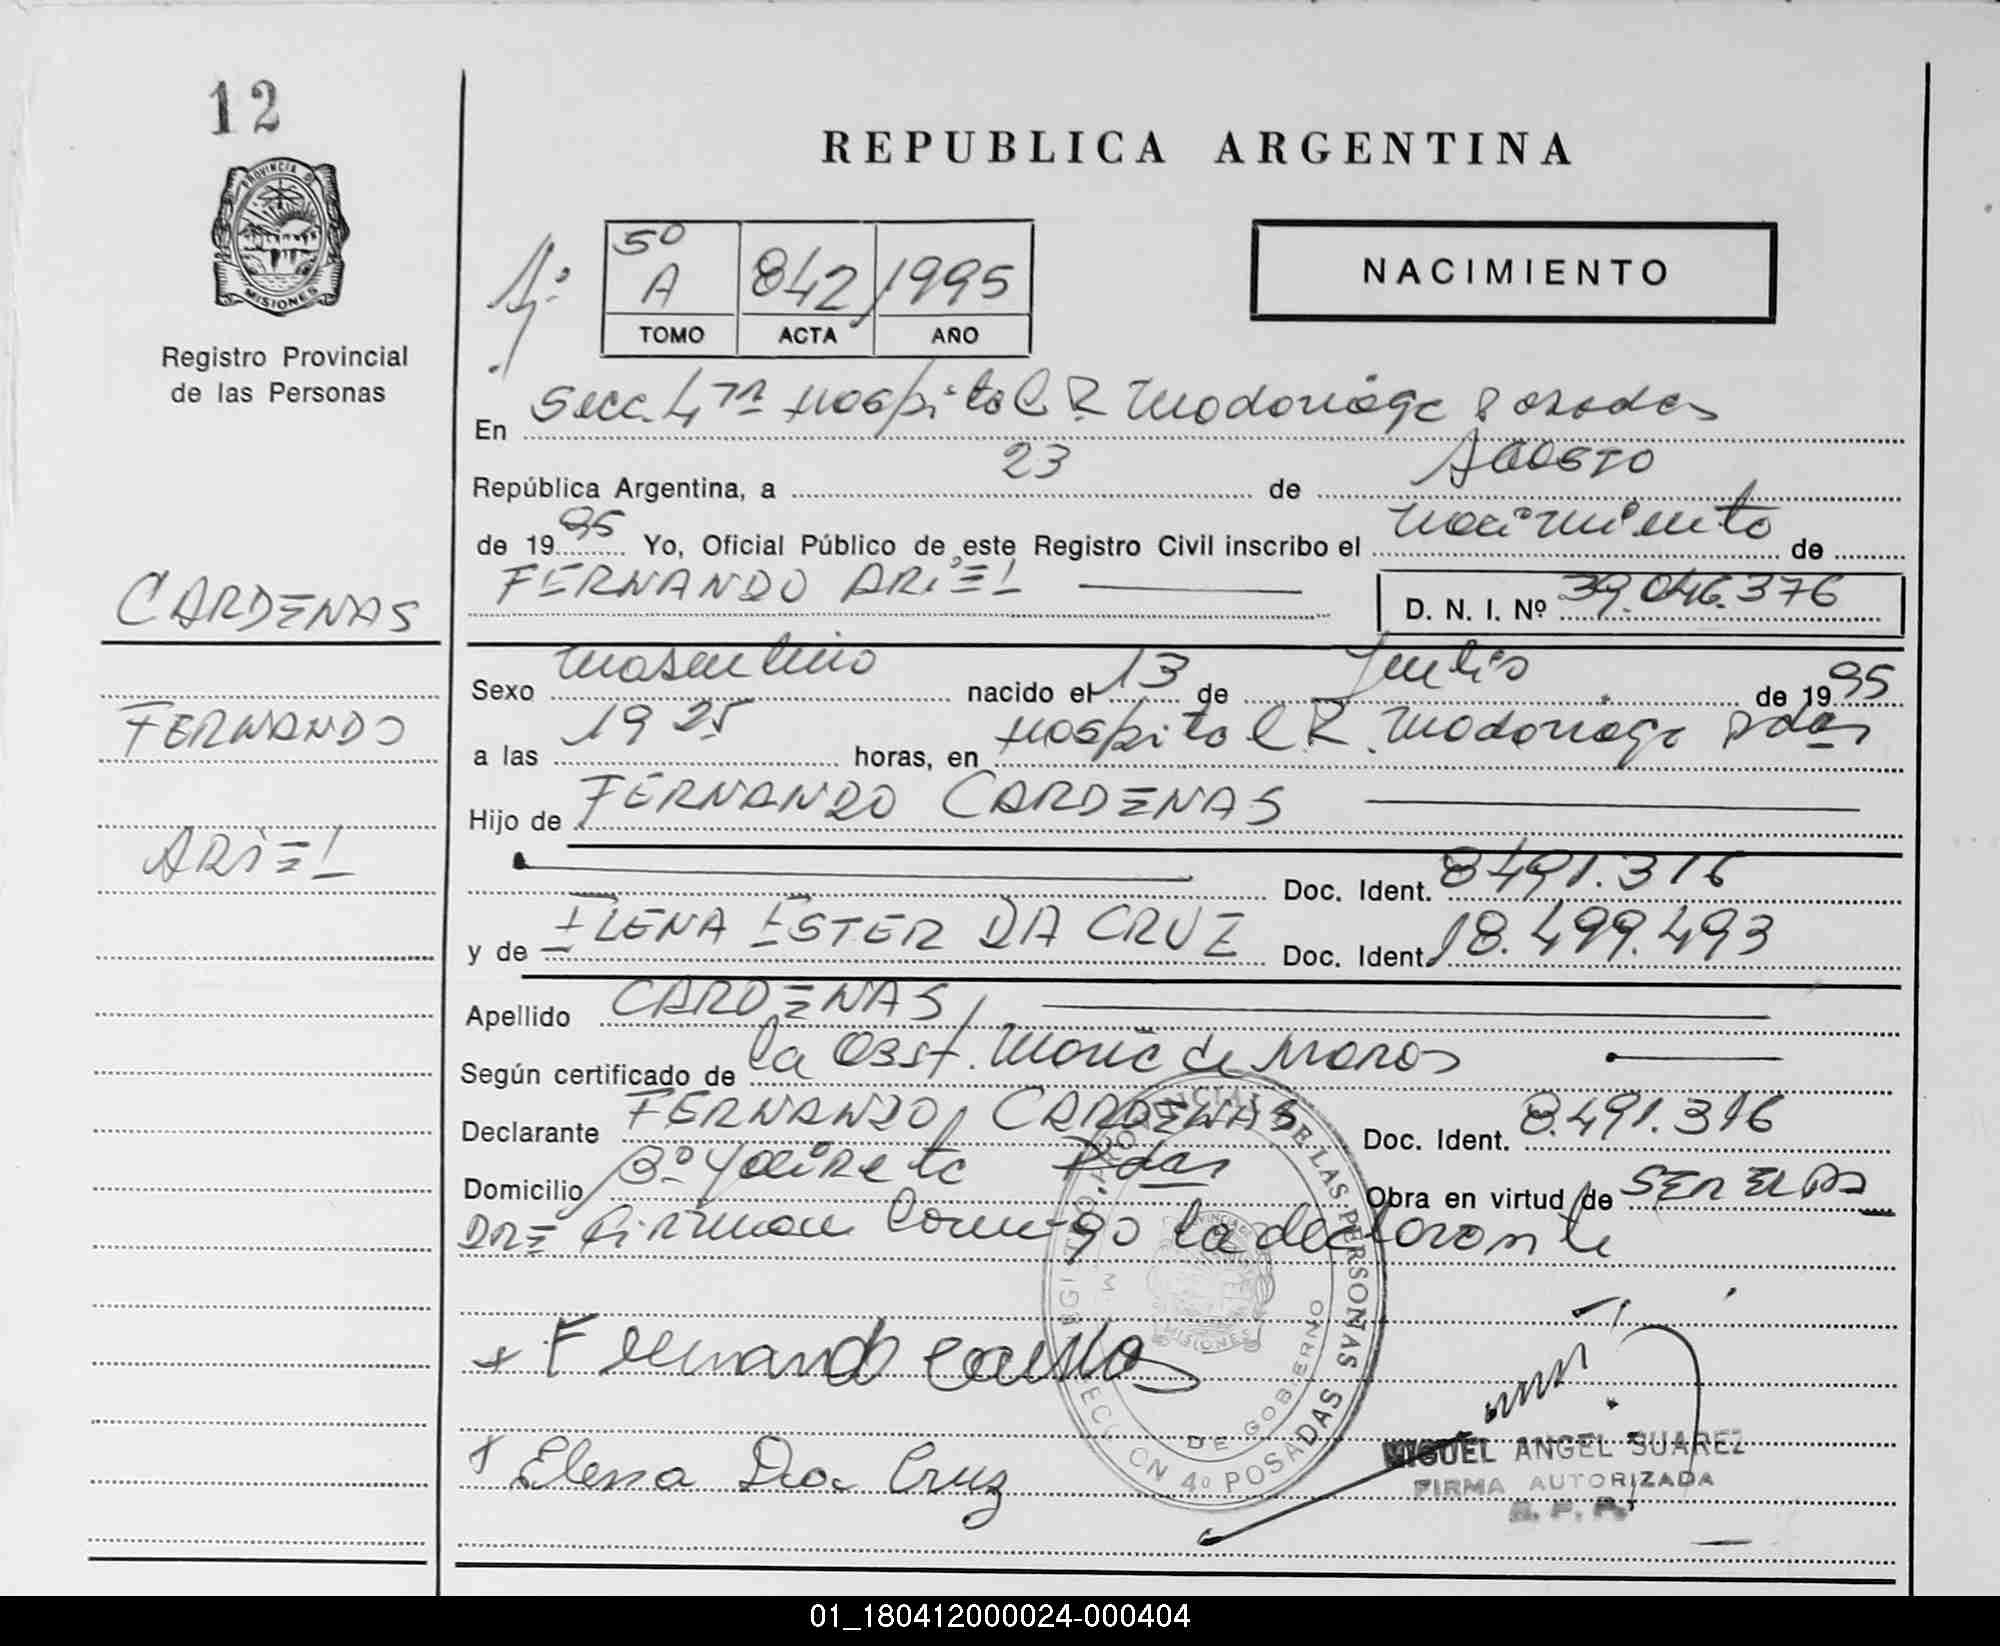 12
REPUBLICA ARGENTINA
PROVINCIA DE
MISIONES
Registro Provincial
de las Personas
5º
A 842 1995
TOMO ACTA AÑO
NACIMIENTO
En Secc. 4ta Hospital R Madariaga Posadas
República Argentina, a 23 de AGOSTO
de 1995 Yo, Oficial Público de este Registro Civil inscribo el nacimiento de
FERNANDO ARIEL D. N. I. Nº 39.046.376
CARDENAS
FERNANDO
ARIEL
Sexo masculino nacido el 13 de Julio de 1995
a las 19 25 horas, en Hospital R. Madariaga Pdas
Hijo de FERNANDO CARDENAS
Doc. Ident. 8491.316
y de ELENA ESTER DA CRUZ Doc. Ident. 18.499.493
Apellido CARDENAS
Según certificado de la Obst. Maria de
Declarante FERNANDO CARDENAS Doc. Ident. 8.491.316
Domicilio Bº Yacireta Pdas Obra en virtud de SER EL PA
DRE Firman conmigo la declarante
DE LAS PERSONAS
MISIONES
DE GOBERNO
SECCION 4º POSADAS
Elena Da Cruz
MIGUEL ANGEL SUAREZ
FIRMA AUTORIZADA
R. P. P.
01_180412000024-000404